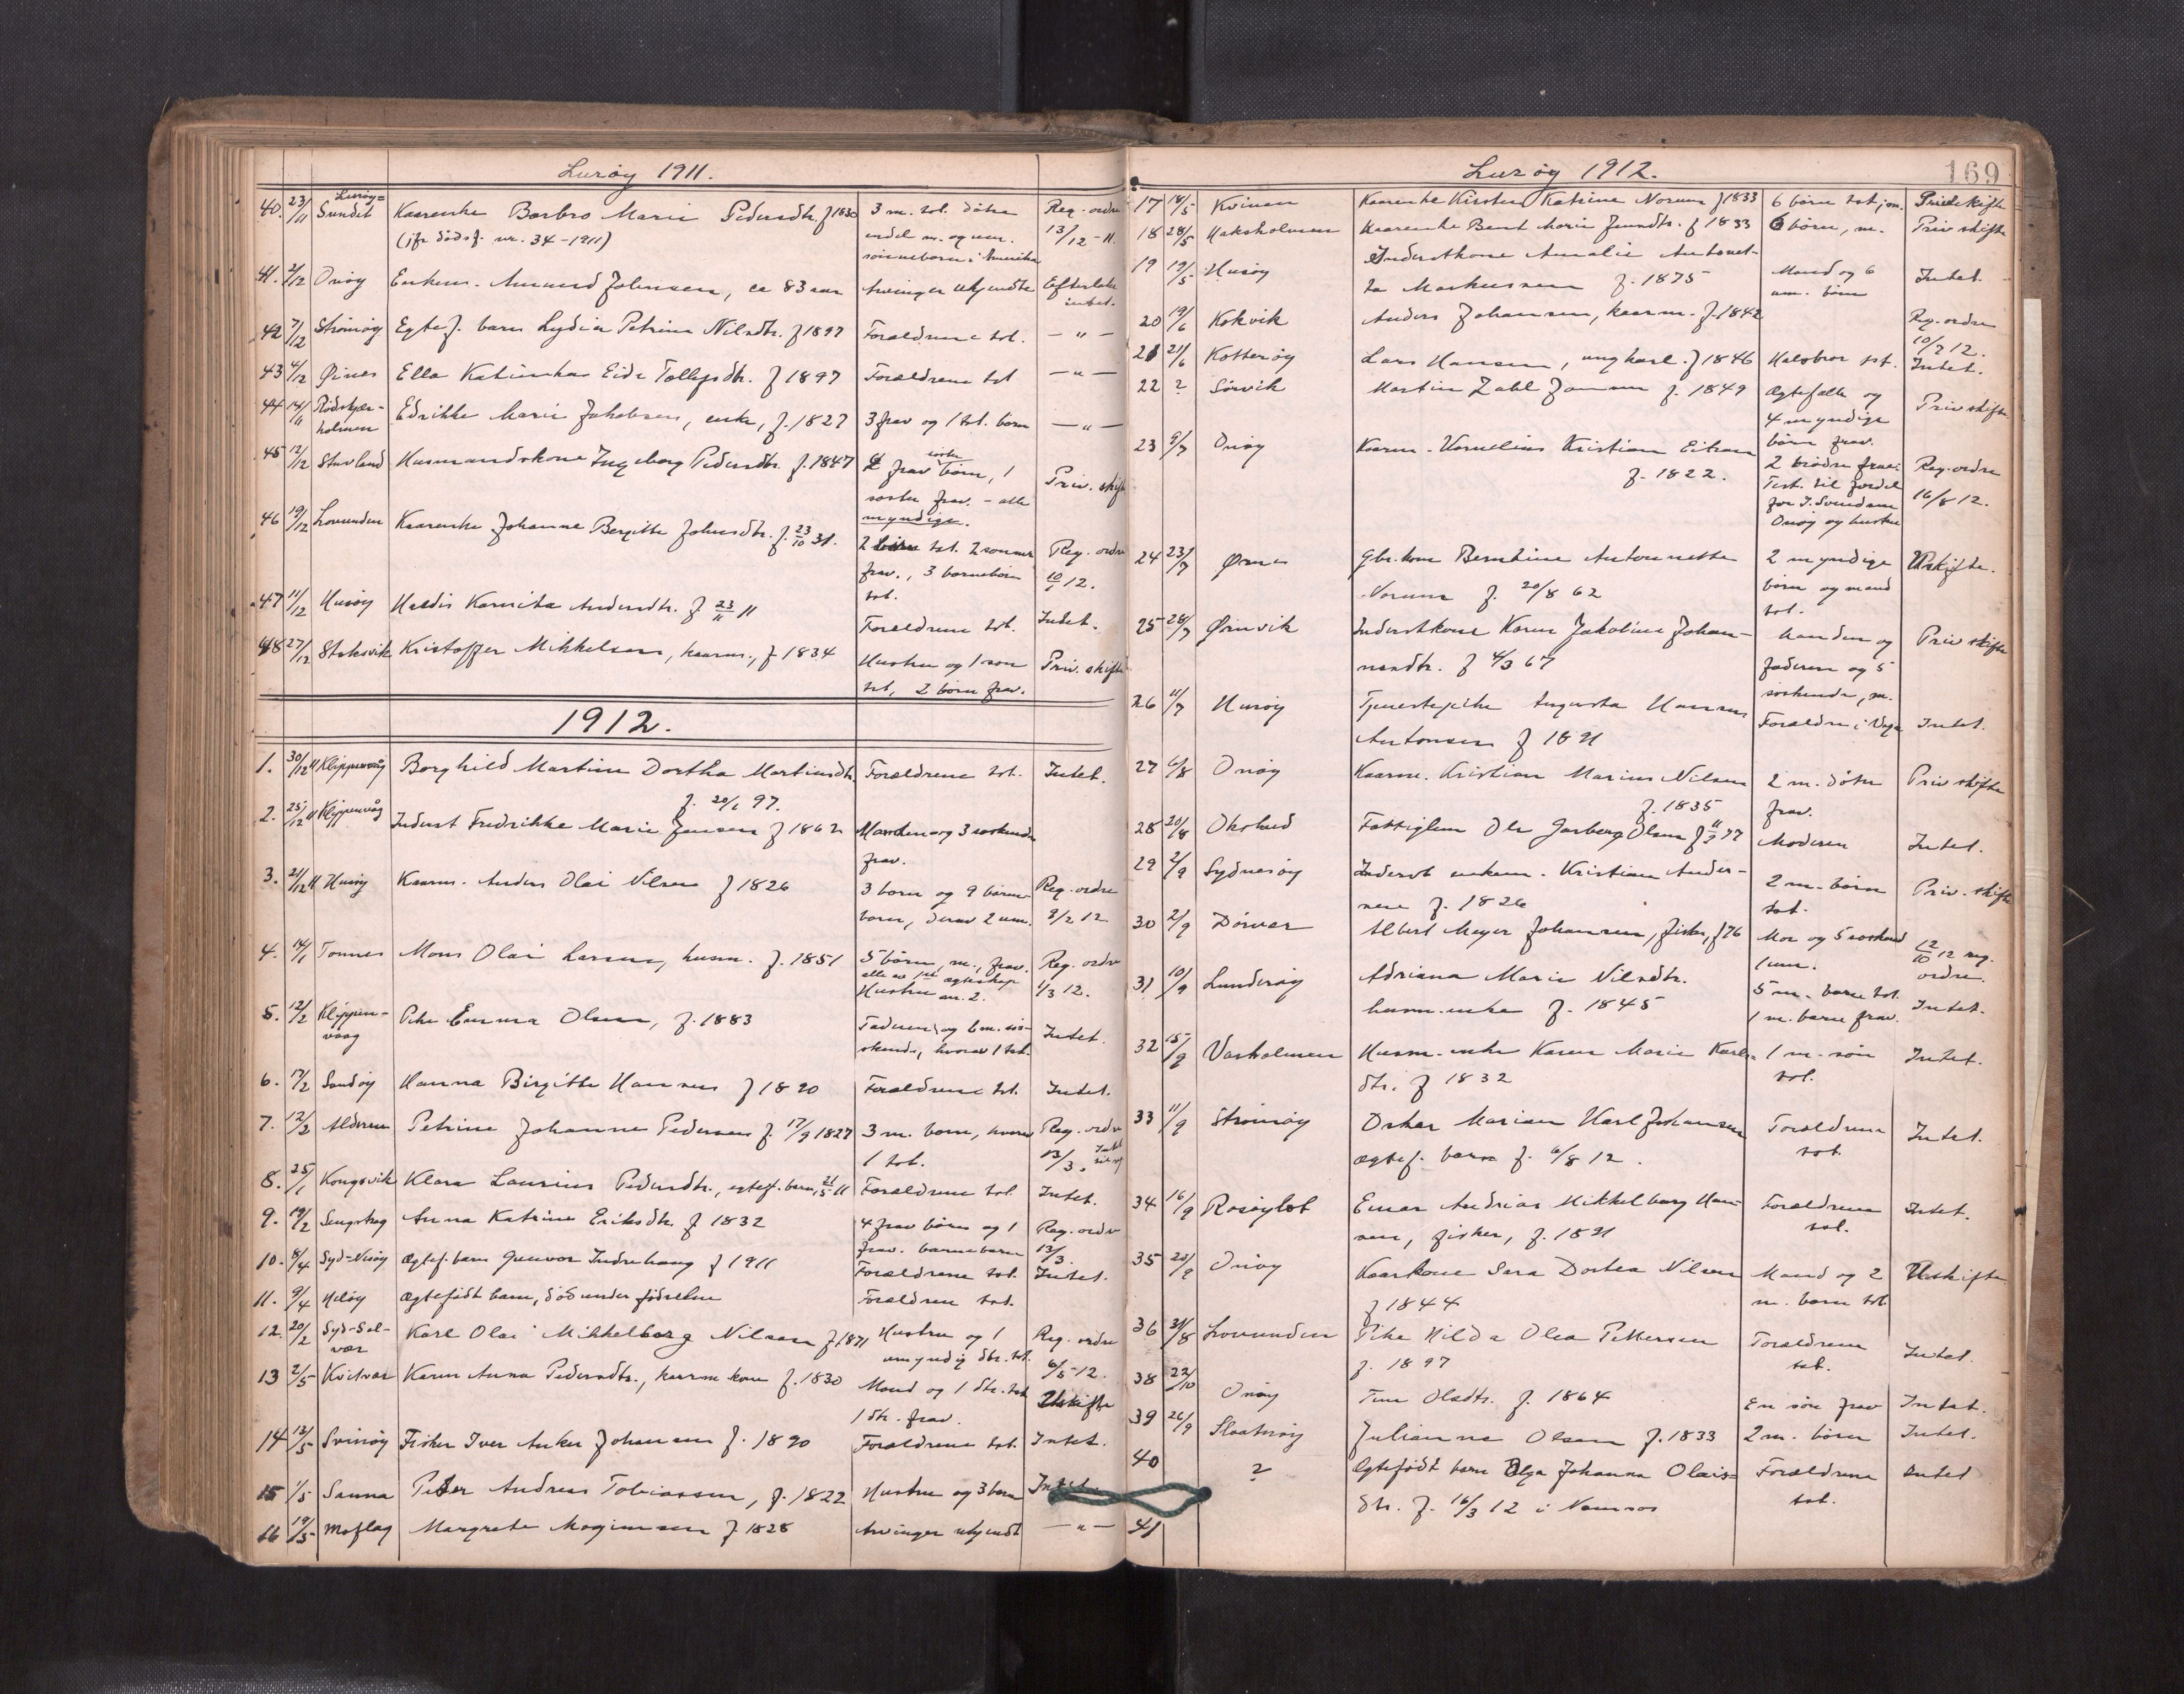 Lurøy 1911.
40. 23/11 Lurøy-Sundet Kaarenke Barbro Marie Pedersdtr. f 1830 3 m. tst. døtre Reg. ordre
(jfr dødsf. nr. 34-1911) 13/12-11.
sønnebørn i Amerika
41. 2/12 Onøy Enkem. Amund Johnsen, ca 83 aar Arvinger ukjendte Efterlate intet.
42 7/12 Strømøy Egtef. barn Lydia Petrine Nilsdtr. f 1897 Forældrene tst. — " —
43 4/12 Øines Ella Katinka Eide Tollefsdtr. f 1897 Forældrene tst — " —
44 14/11 Rødskjær-holmen Edrikke Marie Jakobsen, enke, f. 1827 3 frav og 1 tst. barn — " —
45 12/12 Stuvland Husmandskone Ingeborg Pedersdtr. f. 1847 2 frav børn, 1 Priv. skifte
søster frav. - alle
myndige.
46 19/12 Lovunden Kaarenke Johanne Bergitte Johnsdtr. f. 23/10 31. 2 børn tst. 2 sønner Reg. ordre
frav., 3 barnebørn 10/1 12.
tst.
47 11/12 Husøy Haldis Karnita Andersdtr. f 23/11 11 Forældrene tst. Intet.
48 27/12 Stoksvik Kristoffer Mikkelsen, kaarm., f. 1834 Hustru og 1 søn Priv. skifte
tst, 2 børn frav.
1912.
1. 30/12 11 Klippenvåg Borghild Martine Dorthea Martinsdtr. Forældrene tst. Intet.
f. 20/1 97.
2. 25/12 11 Klippenvåg Inderst Fredrikke Marie Jensen f 1862 Manden og 3 søskende
frav.
3. 21/12 11 Husøy Kaarm. Anders Olai Nilsen f 1826 3 børn og 9 børne- Reg. ordre
børn, derav 2 um. 9/2 12
4. 14/1 Tonnes Mons Olai Larsen, husm. f. 1851 5 børn, m., frav. Reg. ordre
alle av 1st egteskap
Hustru nr. 2. 1/3 12.
5. 12/2 Klippen-vaag Pike Emma Olsen, f. 1883 Faderen og 6 m. søs- Intet.
skende, hvorav 1 tst.
6. 17/2 Sandøy Hanna Birgitte Hansen f 1890 Forældrene tst. Intet.
7. 12/2 Alderen Petrine Johanne Pedersen f. 17/9 1827 3 m. barn, hvorav Reg. ordre
1 tst. 13/3.
8. 25/1 Kongsvik Klara Laurine Pedersdtr., egtef. barn, 21/5 11 Forældrene tst. Intet.
9. 19/2 Sengskag Anna Katrine Eriksdtr. f 1832 4 frav børn og 1 Reg. ordre
frav. barnebarn 13/3.
10. 8/4 Syd-Nesøy Ægtef. barn Gunvor Indrehaug f 1911 Forældrene tst. Intet.
11. 9/4 Heløy Ægtefødt barn, død under fødselen Forældren tst.
12. 20/2 Syd-Sol-vær Karl Olai Mikkelborg Nilsen f. 1871 Hustru og 1 Reg. ordre
umyndig dtr. tst. 6/5-12.
13 2/5 Kvitvar Karen Anna Pedersdtr., kaarm. kone f. 1830 Mand og 1 dtr. tst Uskifte
1 dtr. frav.
14 13/5 Svinøy Fisker Iver Anker Johansen f. 1890 Forældrene tst. Intet.
15 1/5 Sanna Peder Andreas Tobiassen, f. 1822 Hustru og 3 børn Intet.
16 19/5 Moflag Margrete Mogensen f 1828 Arvinger ukjendt — " —
Lurøy 1912.
169
17 18/5 Kvinen Kaarenke Kirsten Katrine Norum f 1833 6 børn tst, m. Priv. skifte
18 28/5 Haksholmen Kaarenke Berit Marie Jensdtr. f 1833 6 børn, m. Priv skifte
19 19/5 Husøy Inderstkone Amalie Antonet-
ta Markussen f. 1875 Mand og 6 um. børn Intet.
20 19/6 Kokvik Anders Johansen, kaarm. f. 1842 Reg. ordre
10/7 12.
21 21/6 Kotterøy Lars Hansen, ungkarl. f 1846 Halvbror tst. Intet.
22 ? Sørvik Martin Zahl Jansen f. 1849 Ægtefælle og Priv skifte
4 myndige
børn frav.
23 9/7 Onøy Kaarm. Kornelius Kristian Eilsen 2 brødre frav. Reg. ordre
f. 1822. Test. til fordel 16/8 12.
for J. Svendsen
Onøy og hustru
24 23/7 Ørnes Gbr. kone Berntine Antonnette 2 myndige Uskifte.
Norum f. 20/8 62 børn og mand
tst.
25 28/7 Ørnvik Inderstkone Karen Jakobine Johan- Manden og Priv skifte
nesdtr. f 4/3 67 faderen og 5
søskende, m.
26 11/7 Husøy Tjenestepike Augusta Hansine Forældre i Vega Intet.
Antonsen f 1891
27 6/8 Onøy Kaarm. Kristian Marius Nilsen 2 m. døtre Priv skifte
f. 1835 frav.
28 20/8 Oksted Fattiglem Ole Garberg Olsen f 11/3 77 Moderen Intet.
29 2/9 Sydnesøy Inderst enkem. Kristian Ander- 2 m. børn Priv. skifte
sen f. 1826 tst.
30 2/9 Dørvær Albert Meyer Johansen, fisker, f 76 Mor og 5 søskend 12/10 12 reg.
1 um. ordre.
31 10/9 Lundørøy Adriana Marie Nilsdtr. 5 m. barn tst.
husm. enke f. 1845 1 m. barn frav. Intet.
32 15/9 Varholmen Husm. enke Karen Marie Karls- 1 m. søn Intet.
dtr. f 1832 tst.
33 11/9 Strømøy Oskar Marian Karl Johansen Forældrene Intet.
ægtef. barn f. 6/8 12. tst.
34 16/9 Rosøylot Einar Andrias Mikkelborg Han- Forældrene Intet.
sen, fisker, f. 1891 tst.
35 20/9 Onøy Kaarkone Sara Dortea Nilsen Mand og 2 Uskifte
f 1844 m. børn tst
36 31/8 Lovunden Pike Hilda Olea Pettersen Forældrene Intet.
f. 1897 tst.
38 22/10 Onøy Tine Olsdtr. f. 1864 En søn frav Intet.
39 26/9 Slaatøy Julianne Olsen f. 1833 2 m. børn Intet.
40 ? Egtefødt barn Olga Johanna Olais- Forældrene Intet
dtr. f. 16/3 12 i Namsos tst.
41